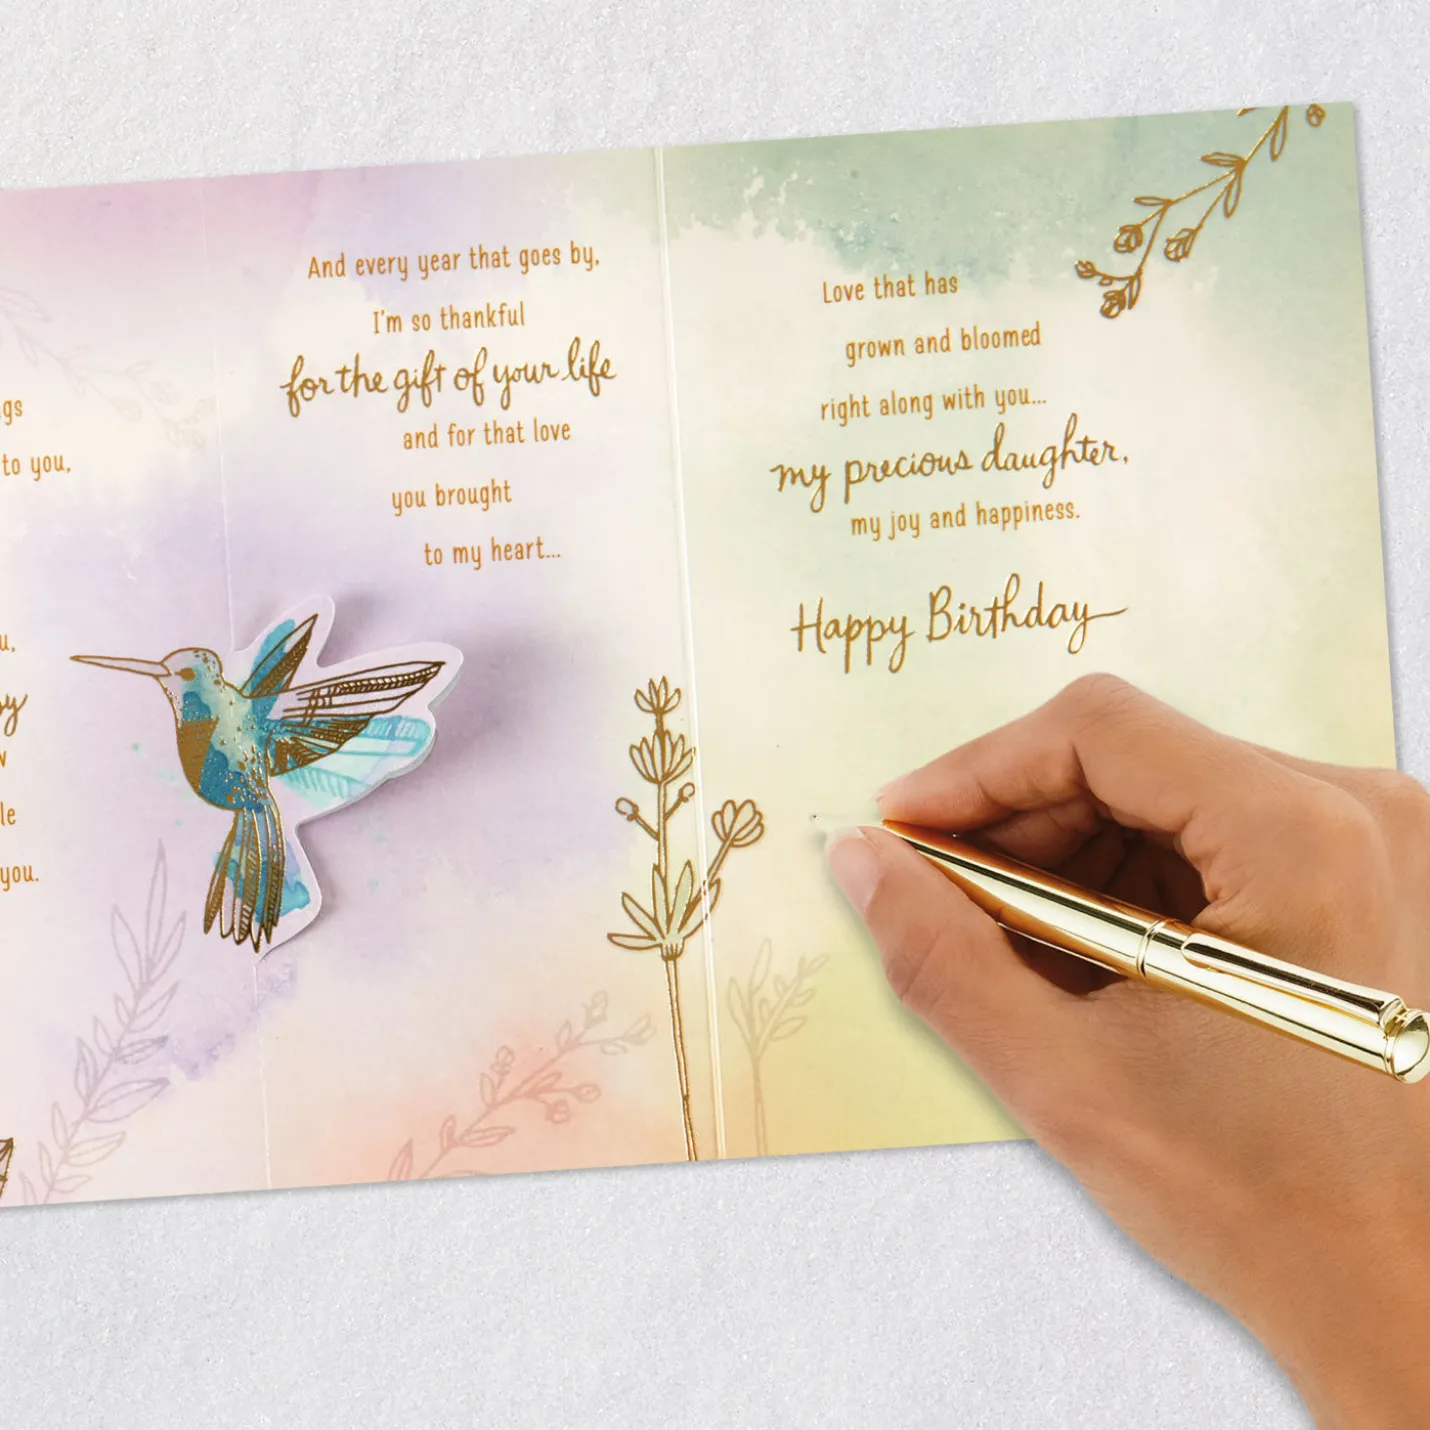 to you,
you.
And every year that goes by,
I'm so thankful
for the gift of your life
and for that love
you brought
to my heart...
Love that has
grown and bloomed
right along with you...
my precious daughter,
my joy and happiness.
Happy Birthday